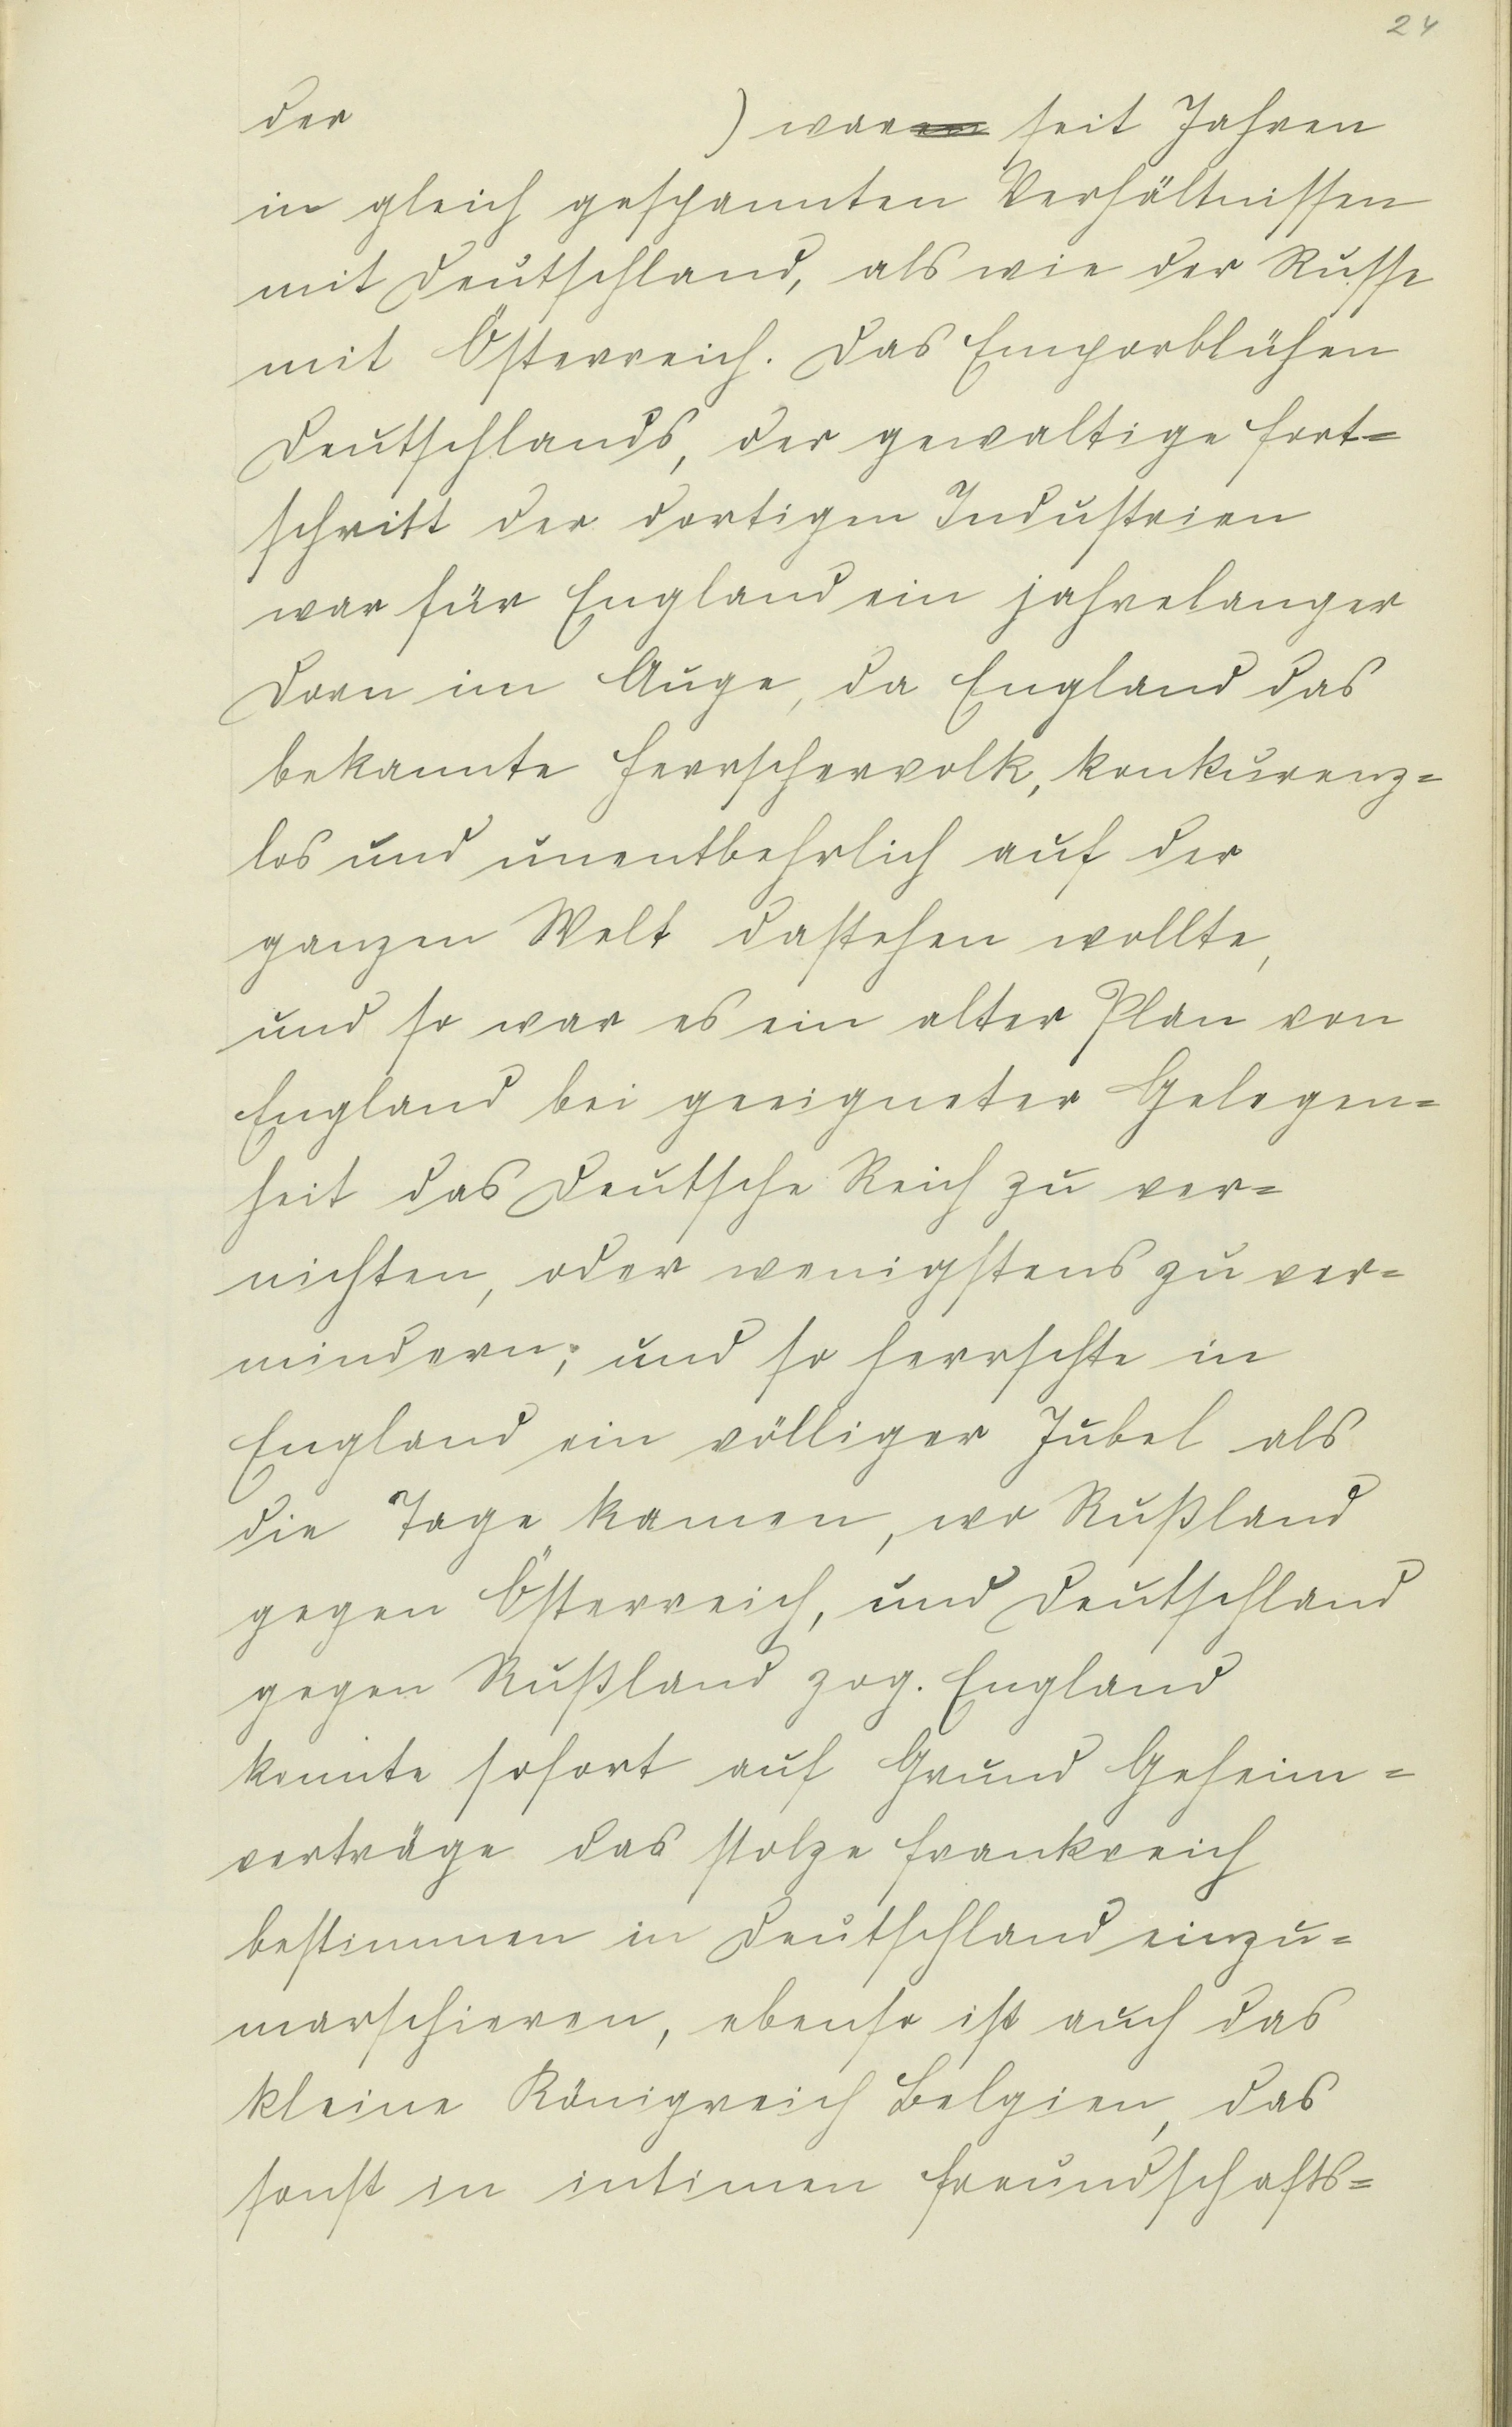 24
der ) waren seit Jahren
in gleich gespannten Verhältnissen
mit Deutschland, als wie der Russe
mit Österreich. Das Emporblühen
Deutschlands, der gewaltige Fort=
schritt der dortigen Industrien
war für England ein jahrelanger
Dorn im Auge, da England das
bekannte Herrschervolk, konkurenz=
los und unentbehrlich auf der
ganzen Welt dastehen wollte,
und so war es ein alter Plan von
England bei geeigneter Gelegen=
heit das Deutsche Reich zu ver=
nichten, oder wenigstens zu ver=
mindern; und so herrschte in
England ein völliger Jubel als
die Tage kamen, wo Rußland
gegen Österreich, und Deutschland
gegen Rußland zog. England
konnte sofort auf Grund Geheim=
verträge das stolze Frankreich
bestimmen in Deutschland einzu=
marschieren, ebenso ist auch das
kleine Königreich Belgien, das
sonst in intimen Freundschafts=